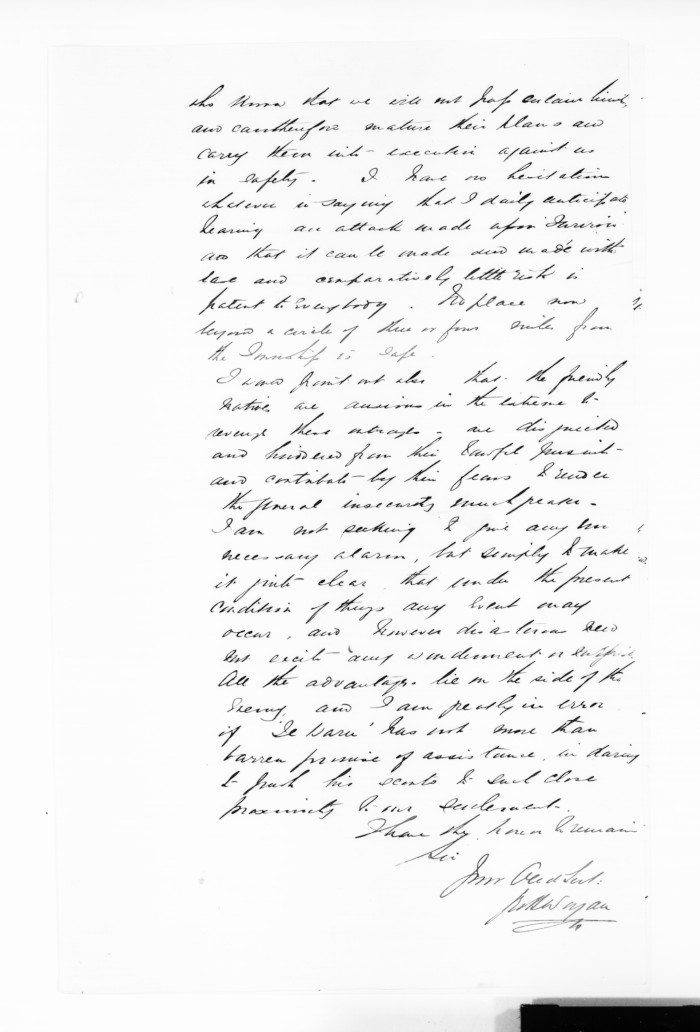 who know that we will not pass certain limits,
and can therefore mature their plans and
carry them into execution against us
in safety. I have no hesitation
whatever in saying that I daily anticipate
hearing an attack made upon
and that it can be made and made with
ease and comparatively little risk is
patent to Everybody. No place now
beyond a circle of three or four miles from
the Township is safe.
I would point out also that the friendly
Natives are anxious in the extreme to
revenge these outrages - are dispirited
and hindered from their lawful pursuits
and contribute by their fears to render
the general insecurity much greater.
I am not seeking to give any un
necessary alarm, but simply to make
it quite clear that under the present
condition of things any Event may
occur, and however disastrous need
not excite any wonderment or surprise.
All the advantages lie on the side of the
Enemy, and I am greatly in error
if 'Te Waru' has not more than
barren promise of assistance, in daring
to push his scouts to such close
proximity to our settlement.
I have the honor to remain
Sir
Your Obed Servt: